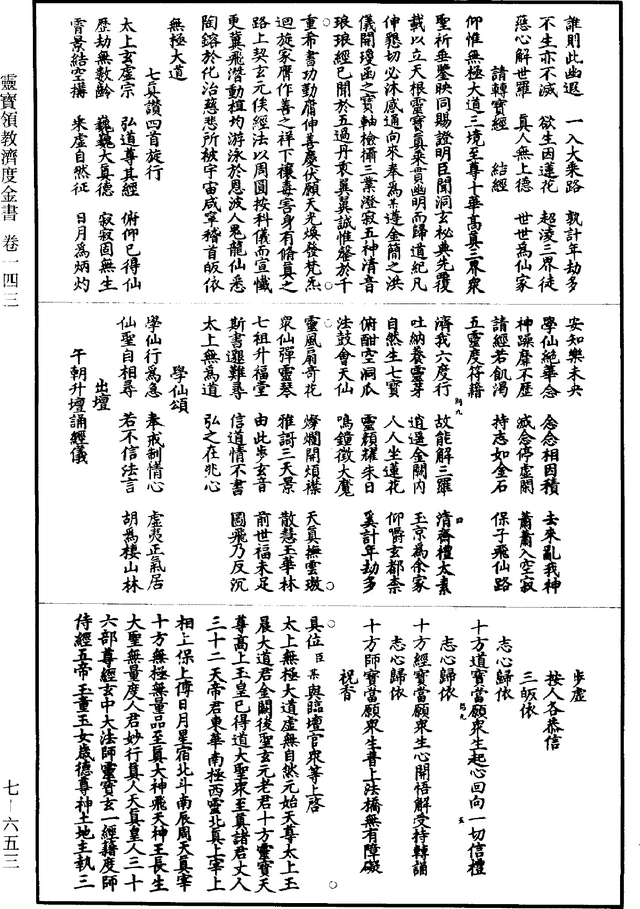 靈寶領教濟度金書 卷一四三
七－六五三
誰則此幽遐 一入大乘路 孰計年劫多
不生亦不滅 欲生因蓮花 超淩三界徒
慈心解世羅 真人無上德 世世為仙家
請轉寶經 結經
仰惟無極大道三境至尊十華高真三界眾
聖祈垂鑒映同賜證明臣聞洞玄秘典先覆
載以立天根靈寶真乘貫幽明而歸道紀凡
伸懇切必沐感通向來奉為某漟金簡之洪
儀開瓊函之寶軸檢攝三業澄寂五神清音
琅琅經已開於五過丹衷翼翼誠惟罄於千
重希書功勤庸伸善慶伏願天光煥發梵炁
迴旋家膺作善之祥下禳毒害身有脩真之
路上契玄元俟經法以周圓按科儀而宣懺
更冀飛潛動植均游泳於恩波人鬼龍仙悉
陶鎔於化治慈悲所被宇宙咸寧稽首皈依
無極大道
七真讚四首旋行
太上玄虛宗 弘道尊其經 俯仰已得仙
歷劫無數齡 巍巍大真德 寂寂固無生
霄景結空構 乘虛自然征 日月為炳灼
安知樂未央
學仙絕華念 念念相因積 去來亂我神
神躁靡不歷 滅念停虛閑 蕭蕭入空寂
請經若飢渴 持志如金石 保子飛仙路
五靈度符籍
濟我六度行 故能解三羅 清齋禮太素
吐納養靈芽 逍遙金闕內 玉京為余家
自然生七寶 人人坐蓮花 仰嚼玄都柰
俯酣空洞瓜 靈顏耀朱日 奚計年劫多
法鼓會天仙 鳴鐘徵大魔
靈風扇奇花 燦爛開煩襟 天真撫雲璈
眾仙彈靈琴 雅謌三天景 散慧玉華林
七祖升福堂 由此步玄音 前世福未足
斯書邈難尋 信道情不書 圖飛乃反沉
太上無為道 弘之在兆心
學仙頌
學仙行為急 奉戒制情心 虛夷正氣居
仙聖自相尋 若不信法言 胡為棲山林
出壇
午朝升壇誦經儀
步虛
按人各恭信
三皈依
志心歸依
十方道寶當願眾生起心回向一切信禮
志心歸依
十方經寶當願眾生心開悟解受持轉誦
志心歸依
十方師寶當願眾生普上法橋無有障礙
祝香
具位臣某與臨壇官眾等上啓
太上無極大道虛無自然元始天尊太上玉
晨大道君金闕後聖玄元老君十方靈寶天
尊高上玉皇已得道大聖眾至真諸君丈人
三十二天帝君東華南極西靈北真上宰上
相上保上傅日月星宿北斗南辰周天真宰
十方無極無量品至真大神飛天神王長生
大聖無量度人君妙行真人天真皇人三十
六部尊經玄中大法師靈寶玄一經籍度師
侍經五帝玉童玉女歲德尊神土地主執三